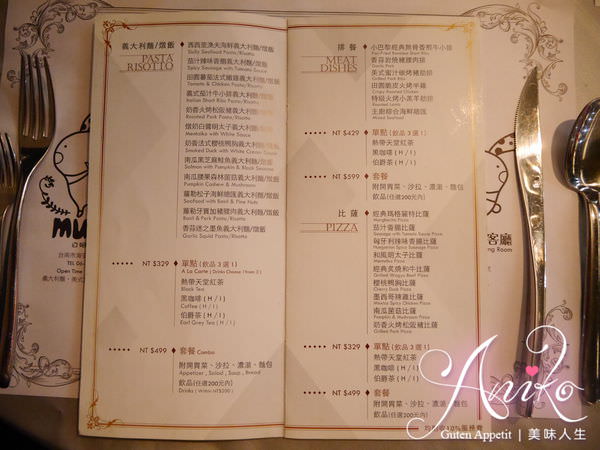 義大利麵/燉飯
PASTA
RISOTTO
西西里漁夫海鮮義大利麵/燉飯
Sicily Seafood Pasta/Risotto
茄汁辣味香腸義大利麵/燉飯
Spicy Sausage with Tomato Sauce
田園蕃茄法式嫩雞義大利麵/燉飯
Tomato & Chicken Pasta/Risotto
義式茄汁牛小排義大利麵/燉飯
Italian Short Ribs Pasta/Risotto
奶香火烤松阪豬義大利麵/燉飯
Roasted Pork Pasta/Risotto
燉奶白醬明太子義大利麵/燉飯
Mentaiko with White Sauce
奶香法式櫻桃鴨胸義大利麵/燉飯
Smoked Duck with White Cream Sauce
南瓜黑芝麻鮭魚義大利麵/燉飯
Salmon with Pumpkin & Black Sesame
南瓜腰果森林菌菇義大利麵/燉飯
Pumpkin Cashew & Mushroom
蘿勒松子海鮮總匯義大利麵/燉飯
Seafood with Basil & Pine Nuts
蘿勒牙買加豬腰肉義大利麵/燉飯
Basil & Pork Pasta/Risotto
香蒜迷之墨魚義大利麵/燉飯
Garlic Squid Pasta/Risotto
NT $329 單點 (飲品 3 選 1)
A La Carte ( Drinks Choose 1 from 3 )
熱帶天堂紅茶
Black Tea
黑咖啡 ( H / I )
Coffee ( H / I )
伯爵茶 ( H / I )
Earl Grey Tea ( H / I )
NT $499 套餐 Combo
附開胃菜、沙拉、濃湯、麵包
Appetizer , Salad , Soup , Bread
飲品(任選200元內)
Drinks ( Within NT$200 )
排 餐
MEAT
DISHES
小巴黎經典無骨香煎牛小排
Pan-Fried Boneless Short Ribs
香蒜岩燒豬腰肉排
Garlic Pork
美式蜜汁碳烤豬肋排
Grilled Pork Ribs
田園脆皮火烤半雞
Crispy Roasted Chicken
特級火烤小羔羊肋排
Roasted Lamb
主廚綜合海鮮總匯
Mixed Seafood
NT $429 單點 (飲品 3 選 1)
熱帶天堂紅茶
黑咖啡 ( H / I )
伯爵茶 ( H / I )
NT $599 套餐
附開胃菜、沙拉、濃湯、麵包
飲品(任選200元內)
比 薩
PIZZA
經典瑪格麗特比薩
Margherita Pizza
茄汁香腸比薩
Sausage with Tomato Sauce Pizza
匈牙利辣味香腸比薩
Hungarian Spicy Sausage Pizza
和風明太子比薩
Mentaiko Pizza
經典炙燒和牛比薩
Grilled Wagyu Beef Pizza
櫻桃鴨胸比薩
Cherry Duck Pizza
墨西哥辣雞比薩
Mexico Spicy Chicken Pizza
南瓜菌菇比薩
Pumpkin & Mushroom Pizza
奶香火烤松阪豬比薩
Grilled Pork Pizza
NT $329 單點 (飲品 3 選 1)
熱帶天堂紅茶
黑咖啡 ( H / I )
伯爵茶 ( H / I )
NT $499 套餐
附開胃菜、沙拉、濃湯、麵包
飲品(任選200元內)
10%服務費
客廳
Aniko
Guten Appetit | 美味人生